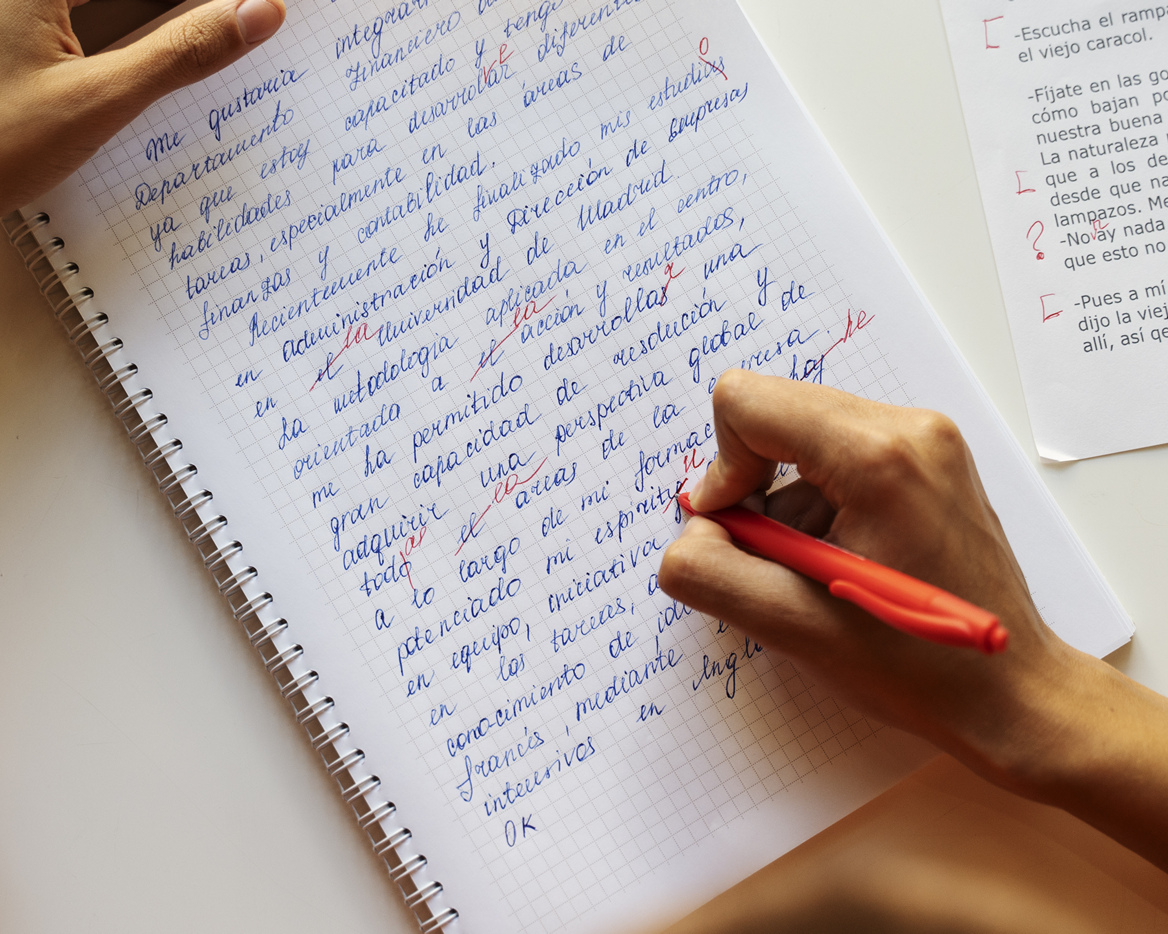 Me gustaria integrar
Departamento Financiero
ya que estoy capacitado y tengo
habilidades para desarrollar diferentes
e
tareas, especialmente en las áreas de
finanzas y contabilidad.
Recientemente he finalizado mis estudias
o
en administración y Dirección de empresas
en el Universidad de Madrid.
la
La metodologia aplicada en el centro,
orientada a el acción y resultados,
la
me ha permitido desarrollas una
r
gran capacidad de resolución y
adquirir una perspectiva global de
todo el areas de la empresa.
as
la
a lo largo de mi formac hay
he
potenciado mi espirity
u
en equipo, iniciativa
en los tareas, a
conocimiento de id
francés, mediante
intensivos en Ingl
OK
-Escucha el rampa
el viejo caracol.
-Fíjate en las go
cómo bajan po
nuestra buena
La naturaleza
que a los de
desde que na
lampazos. Me
? -Novay nada
que esto no
-Pues a mí
dijo la viej
allí, así qe